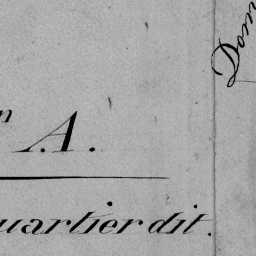 n A.
uartier dit.
Dom